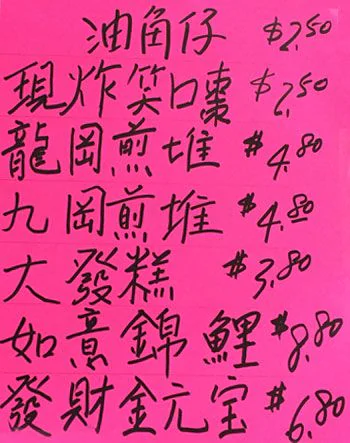 油角仔 $2.50
現炸笑口棗 $2.50
龍岡煎堆 $4.80
九岡煎堆 $4.80
大發糕 $3.80
如意錦鯉 $8.80
發財金元宝 $6.80